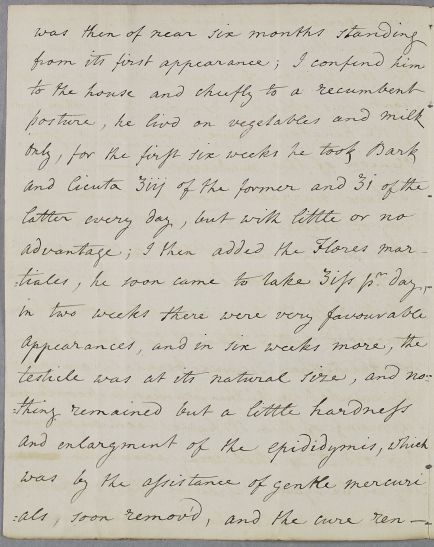 was then of near six months standing
from its first appearance; I confind him
to the house and chiefly to a recumbent
posture, he livd on vegetables and milk
only, for the first six weeks he took Bark
and Cicuta ʒiij of the former and ʒi of the
latter every day, but with little or no
advantage; I then added the Flores mar-
tiales, he soon came to take ʒiſs pr. day,
in two weeks there were very favourable
appearances, and in six weeks more, the
testicle was at its natural size, and no=
:thing remained but a little hardneſs
and enlargment of the epididymis, which
was by the aſsistance of gentle mercuri
=als, soon remov'd, and the cure ren-